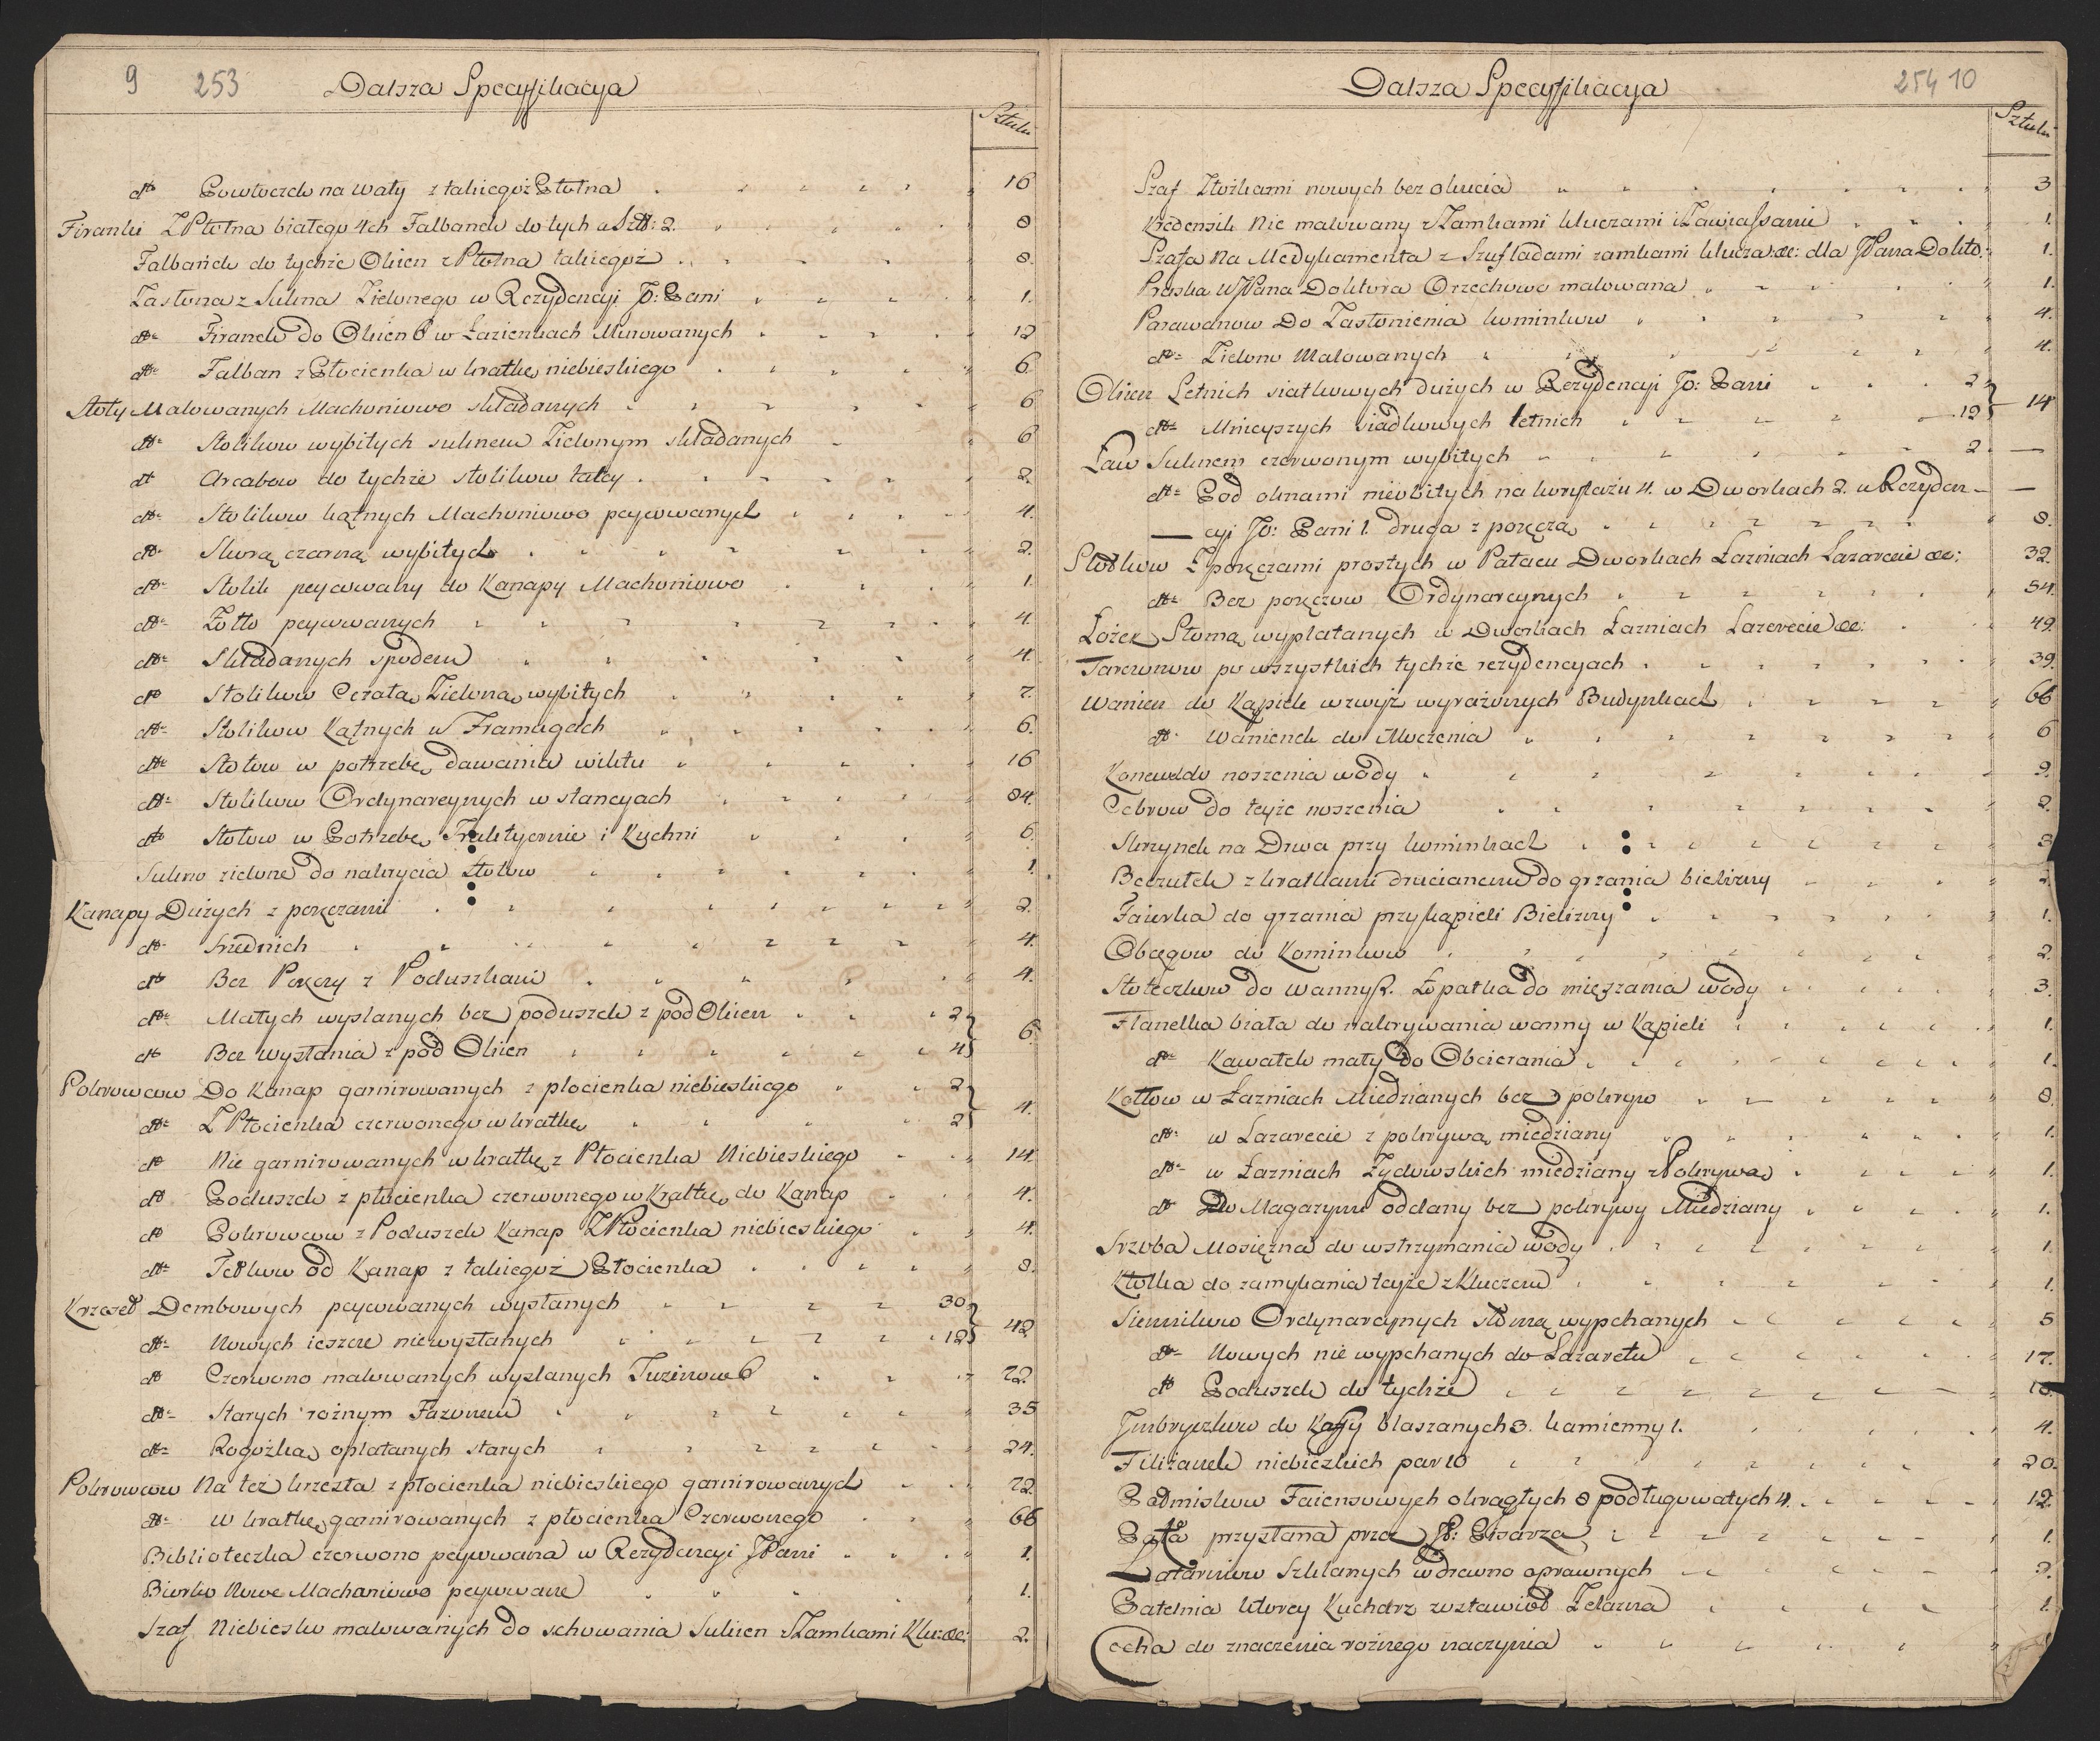 9 253 Dalsza Specyffikacya
Sztuki
dto Powłoczek na wały z takiegoż Płotna 16
Firanki Z Płotna białego 4ch Falbanek do tych a Szt: 2. 8
Falbanek do tychże Okien z Płotna takiegoż 8.
Zasłona z Sukna Zielonego w Rezydencyi Jo: Pani 1.
dto Firanek do Okien 6 w Łazienkach Murowanych 12
dto Falban z Płocienka w kratkę niebieskiego 6.
Stoły Malowanych Machoniowo składanych 6
dto Stolikow wybitych suknem Zielonym składanych 6
dto Arcabow do tychże stolikow talcy 2.
dto Stolikow kątnych Machoniowo peycowanych 4.
dto Skurą czarną wybitych 2.
dto Stolik peycowalny do Kanapy Machoniowo 1.
dto Zołto peycowanych 4.
dto Składanych spodem 4.
dto Stolikow Ceratą Zieloną wybitych 7.
dto Stolikow Kątnych w Framugach 6.
dto Stołow w potrzebę dawania wiktu 16
dto Stolikow Ordynareynych w stancyach 84.
dto Stołow w Potrzebę Traktyernie i Kuchni 6.
Sukno zielone do nakrycia Stołow 1.
Kanapy Dużych z poręczami 2.
dto Srzednich 4.
dto Bez Poręczy z Poduszkami 4.
dto Małych wysłanych bez poduszek z pod Okien 2
dto Bez wysłania z pod Okien 4 6.
Pokrowcow Do Kanap garnirowanych z płocienka niebieskiego 2
dto Z Płocienka czerwonego w kratkę 2 4.
dto Nie garnirowanych w kratkę z Płocienka Niebieskiego 14.
dto Poduszek z płocienka czerwonego w Kratkę do Kanap 4.
dto Pokrowcow z Poduszek Kanap Z Płocienka niebieskiego 4.
dto Tełkow od Kanap z takiegoż Płocienka 8.
Krzeseł Dembowych peycowanych wysłanych 30.
dto Nowych ieszcze niewysłanych 12 42
dto Czerwono malowanych wysłanych Tuzinow 6 72.
dto Starych rożnym Fazonem 35
dto Rogożką oplatanych starych 24.
Pokrowcow Na też krzesła z płocienka niebieskiego garnirowanych 72.
dto w kratkę garnirowanych z płocienka Czerwonego 66
Biblioteczka czerwono peycowana w Rezydencyi JPani 1.
Biorko Nowe Machoniowo peycowane 1.
Szaf Niebiesko malowanych do schowania Sukien z Zamkami Klu: &c: 2.
Dalsza Specyffikacya 254 10
Sztuki
Szaf Z łożkami nowych bez okucia 3
Kredensik Nie malowany z Zamkami kluczami i Zawiassami 1.
Szafa Na Medykamenta z Szufladami zamkami klucza: &c: dla JPana Dokto: 1.
Praska WJPana Doktora Orzechowo malowana 1.
Parawanow Do Zasłonienia kominkow 4.
dto Zielono Malowanych 4.
Okien Letnich siatkowych dużych w Rezydencyi Jo: Pani 2
dto Mnieyszych siadkowych letnich 12 14
Ław Suknem czerwonym wybitych 2. —
dto Pod oknami nieobitych na korytażu 4. w Dworkach 2. u Rezyden- —
— cyi Jo: Pani 1. druga z poręczą 8.
Stołkow Z poręczami prostych w Pałacu Dworkach Łazniach Lazarecie &c: 32.
dto Bez poręczow Ordynarcynych 54.
Łożek Słomą wyplatanych w Dworkach Łazniach Lazerecie &c: 49.
Tarczonow po wszystkich tychże rezydencyach 39.
Wanien do Kąpieli wzwyż wyrażonych Budynkach 66
dto Wanienek do Moczenia 6
Konewek do noszenia wody 9.
Cebrow do teyże noszenia 2.
Skrzynek na Drwa przy kominkach 3
Beczułek z kratkami drucianemi do grzania bielizny 2.
Faierka do grzania przy kąpieli Bielizny 1.
Obcęgow do Kominkow 2.
Stołeczkow do wanny 2. Łopatka do mięszania wody 3.
Flanelka biała do nakrywania wanny w Kąpieli 1.
dto Kawałek mały do Obcierania 1.
Kotłow w Łazniach Miedzianych bez pokryw 8.
dto w Lazarecie z pokrywą miedziany 1.
dto w Łazniach Zydowskich miedziany z Pokrywą 1.
dto Do Magazynu oddany bez pokrywy Miedziany 1.
Srzoba Mosiężna do wstrzymania wody 1.
Kłotka do zamykania teyże z Kluczem 1.
Siennikow Ordynarcynych słomą wypchanych 5
dto Nowych nie wypchanych do Lazaretu 17.
dto Poduszek do tychże
Jmbryczkow do Kaffy blaszanych 3. kamienny 1. 4.
Filiżanek niebieskich par 10 20.
Pułmiskow Faiensowych okrągłych 8 podługowatych 4. 12.
przysłana przez JP: Pisarza 1.
Latarniow Szklanych w drewno oprawnych 2.
Patelnia ktorey Kucharz zostawioł Zelazna 1.
Cecha do znaczenia rożnego naczynia